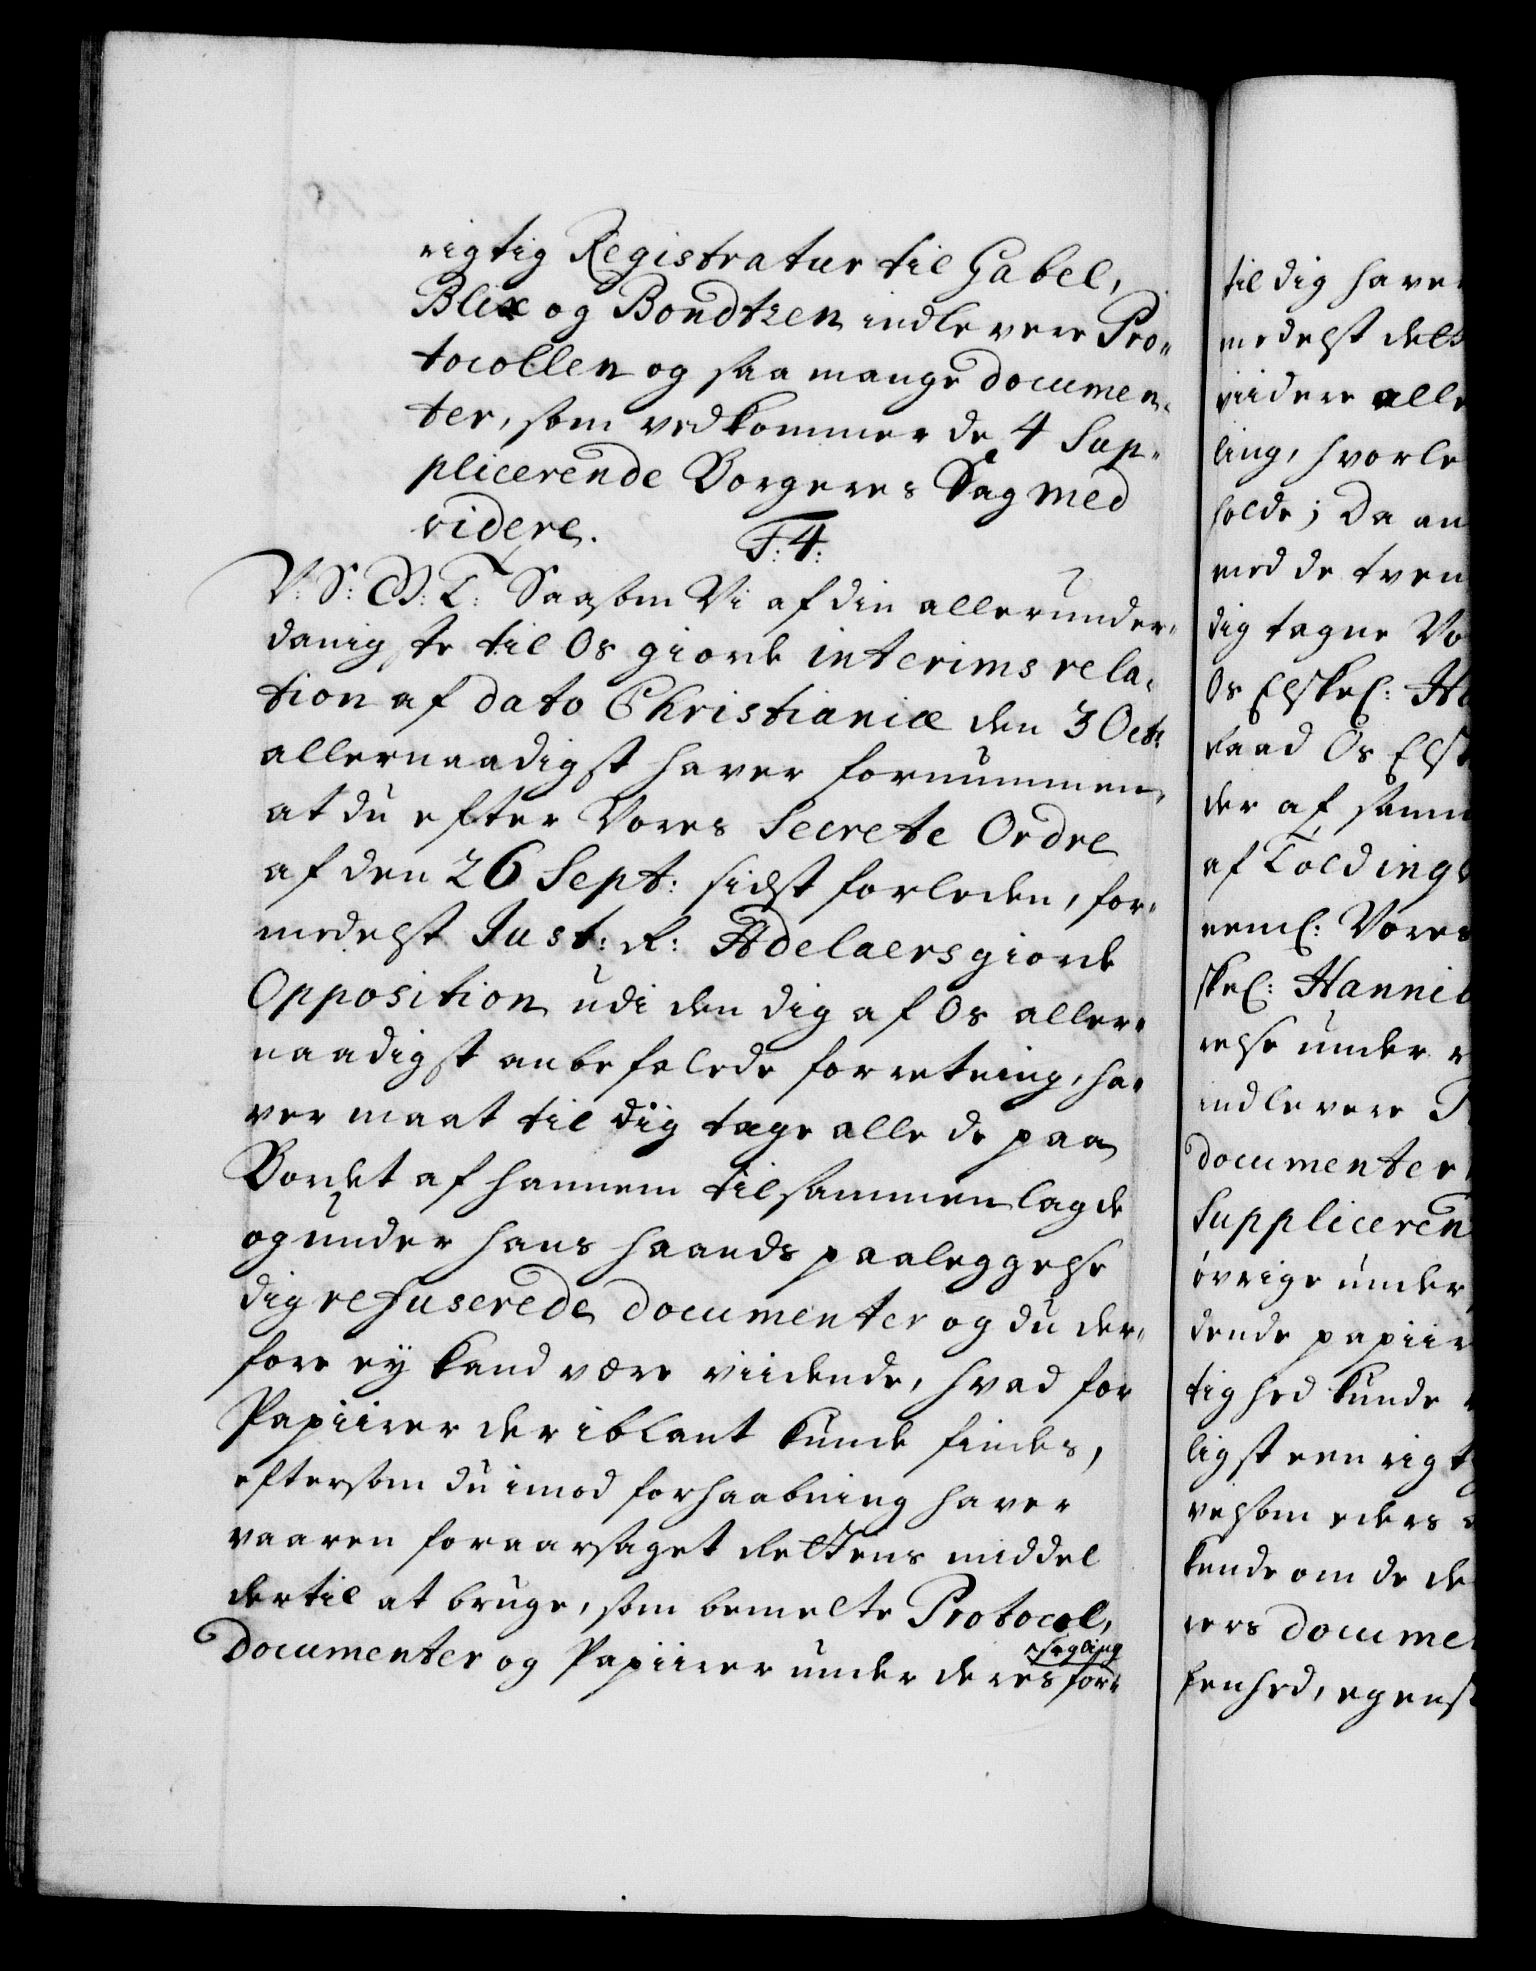 rigtig Registratur til Gabel,
Blix og Bondtzen indlevere Pro„
tocollen og saa mange documen„
ter, som vedkommer de 4 Sup„
plicerende Borgeres Sag med
videre.
F: 4:
V: S: G: T: Saasom Vi af din allerunder„
danigste til Os giorde interims rela„
tion af dato Christianiæ den 3 Octr:
allernaadigst haver fornummen,
at du efter Vores Secrete Ordre
af den 26 Sept: sidst forleden, for„
medelst Just: R: Adelaers giorde
Opposition udi den dig af Os aller„
naadigst anbefalede forretning, ha„
ver maat til dig tage alle de paa
Bordet af hannem tilsammenlagde
og under hans haands paaleggelse
dig refuserede documenter og du der„
fore ey kand være viidende, hvad for
Papiirer der iblant kunde findes,
eftersom du imod forhaabning haver
vaaren foraarsaget dettens middel
dertil at bruge, som bemelte Protocol,
documenter og Papiirer under deres for„
segling
til dig have
medelst dett
viidere alle
ling, hvorle
holde; Da an
med de tven
dig tagne Vo
Os Elskel: Ha
raad Os Elsk
der af samm
af Toldinge
neml: Vores
skel: Hannib
relse under
indlevere P
documenter
Suppliceren
øvrige under
dende papiir
tighed kunde
ligst een rigt
velsom eders
kende om de de
rers docume
fenhed, egensk